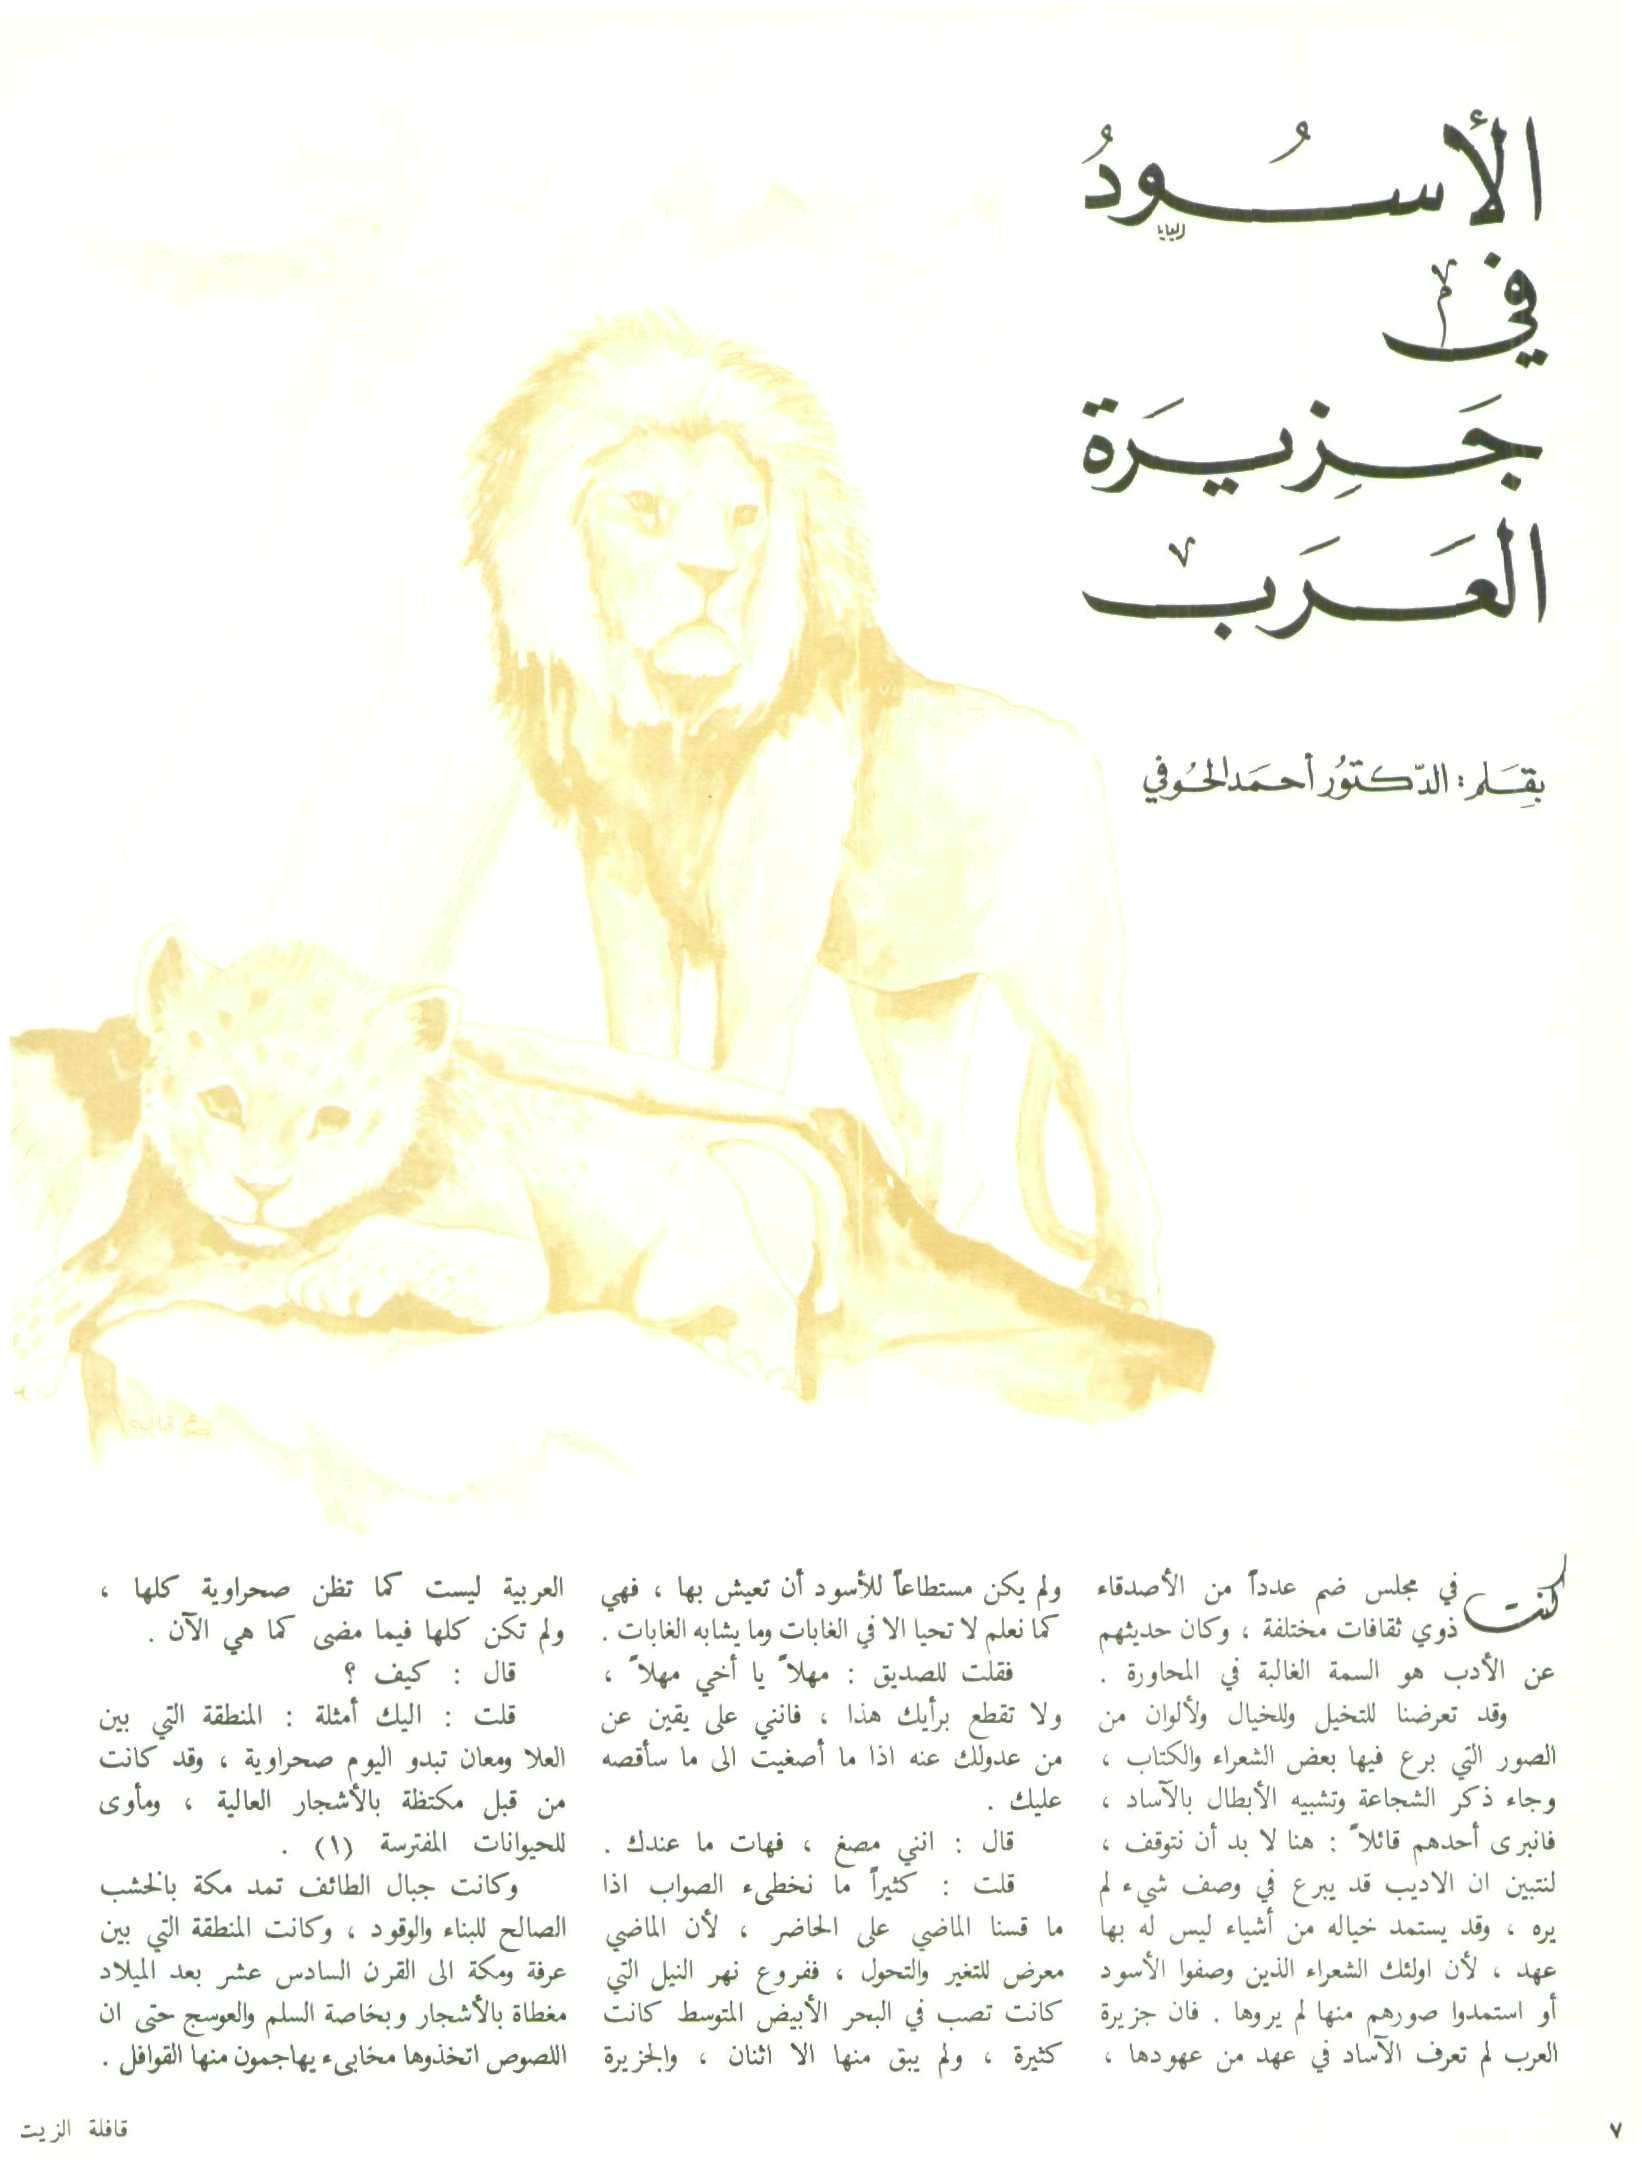 الأسُودُ
في
جَزِيرَة
العَرَب
بقِلَم : الدّكتوُر أحمَد الحُوفي
كنت في مجلس ضم عدداً من الأصدقاء
ذوي ثقافات مختلفة ، وكان حديثهم
عن الأدب هو السمة الغالبة في المحاورة .
وقد تعرضنا للتخيل وللخيال ولألوان من
الصور التي برع فيها بعض الشعراء والكتاب ،
وجاء ذكر الشجاعة وتشبيه الأبطال بالآساد ،
فانبرى أحدهم قائلاً : هنا لا بد أن نتوقف ،
لنتبين ان الاديب قد يبرع في وصف شيء لم
يره ، وقد يستمد خياله من أشياء ليس له بها
عهد ، لأن اولئك الشعراء الذين وصفوا الأسود
أو استمدوا صورهم منها لم يروها . فان جزيرة
العرب لم تعرف الآساد في عهد من عهودها ،
ولم يكن مستطاعاً للأسود أن تعيش بها ، فهي
كما نعلم لا تحيا الا في الغابات وما يشابه الغابات .
فقلت للصديق : مهلاً يا أخي مهلاً ،
ولا تقطع برأيك هذا ، فانني على يقين عن
من عدولك عنه اذا ما أصغيت الى ما سأقصه
عليك .
قال : انني مصغ ، فهات ما عندك .
قلت : كثيراً ما نخطىء الصواب اذا
ما قسنا الماضي على الحاضر ، لأن الماضي
معرض للتغير والتحول ، ففروع نهر النيل التي
كانت تصب في البحر الأبيض المتوسط كانت
كثيرة ، ولم يبق منها الا اثنان ، والجزيرة
العربية ليست كما تظن صحراوية كلها ،
ولم تكن كلها فيما مضى كما هي الآن .
قال : كيف ؟
قلت : اليك أمثلة : المنطقة التي بين
العلا ومعان تبدو اليوم صحراوية ، وقد كانت
من قبل مكتظة بالأشجار العالية ، ومأوى
للحيوانات المفترسة (١) .
وكانت جبال الطائف تمد مكة بالخشب
الصالح للبناء والوقود ، وكانت المنطقة التي بين
عرفة ومكة الى القرن السادس عشر بعد الميلاد
مغطاة بالأشجار وبخاصة السلم والعوسج حتى ان
اللصوص اتخذوها مخابىء يهاجمون منها القوافل .
٧
قافلة الزيت